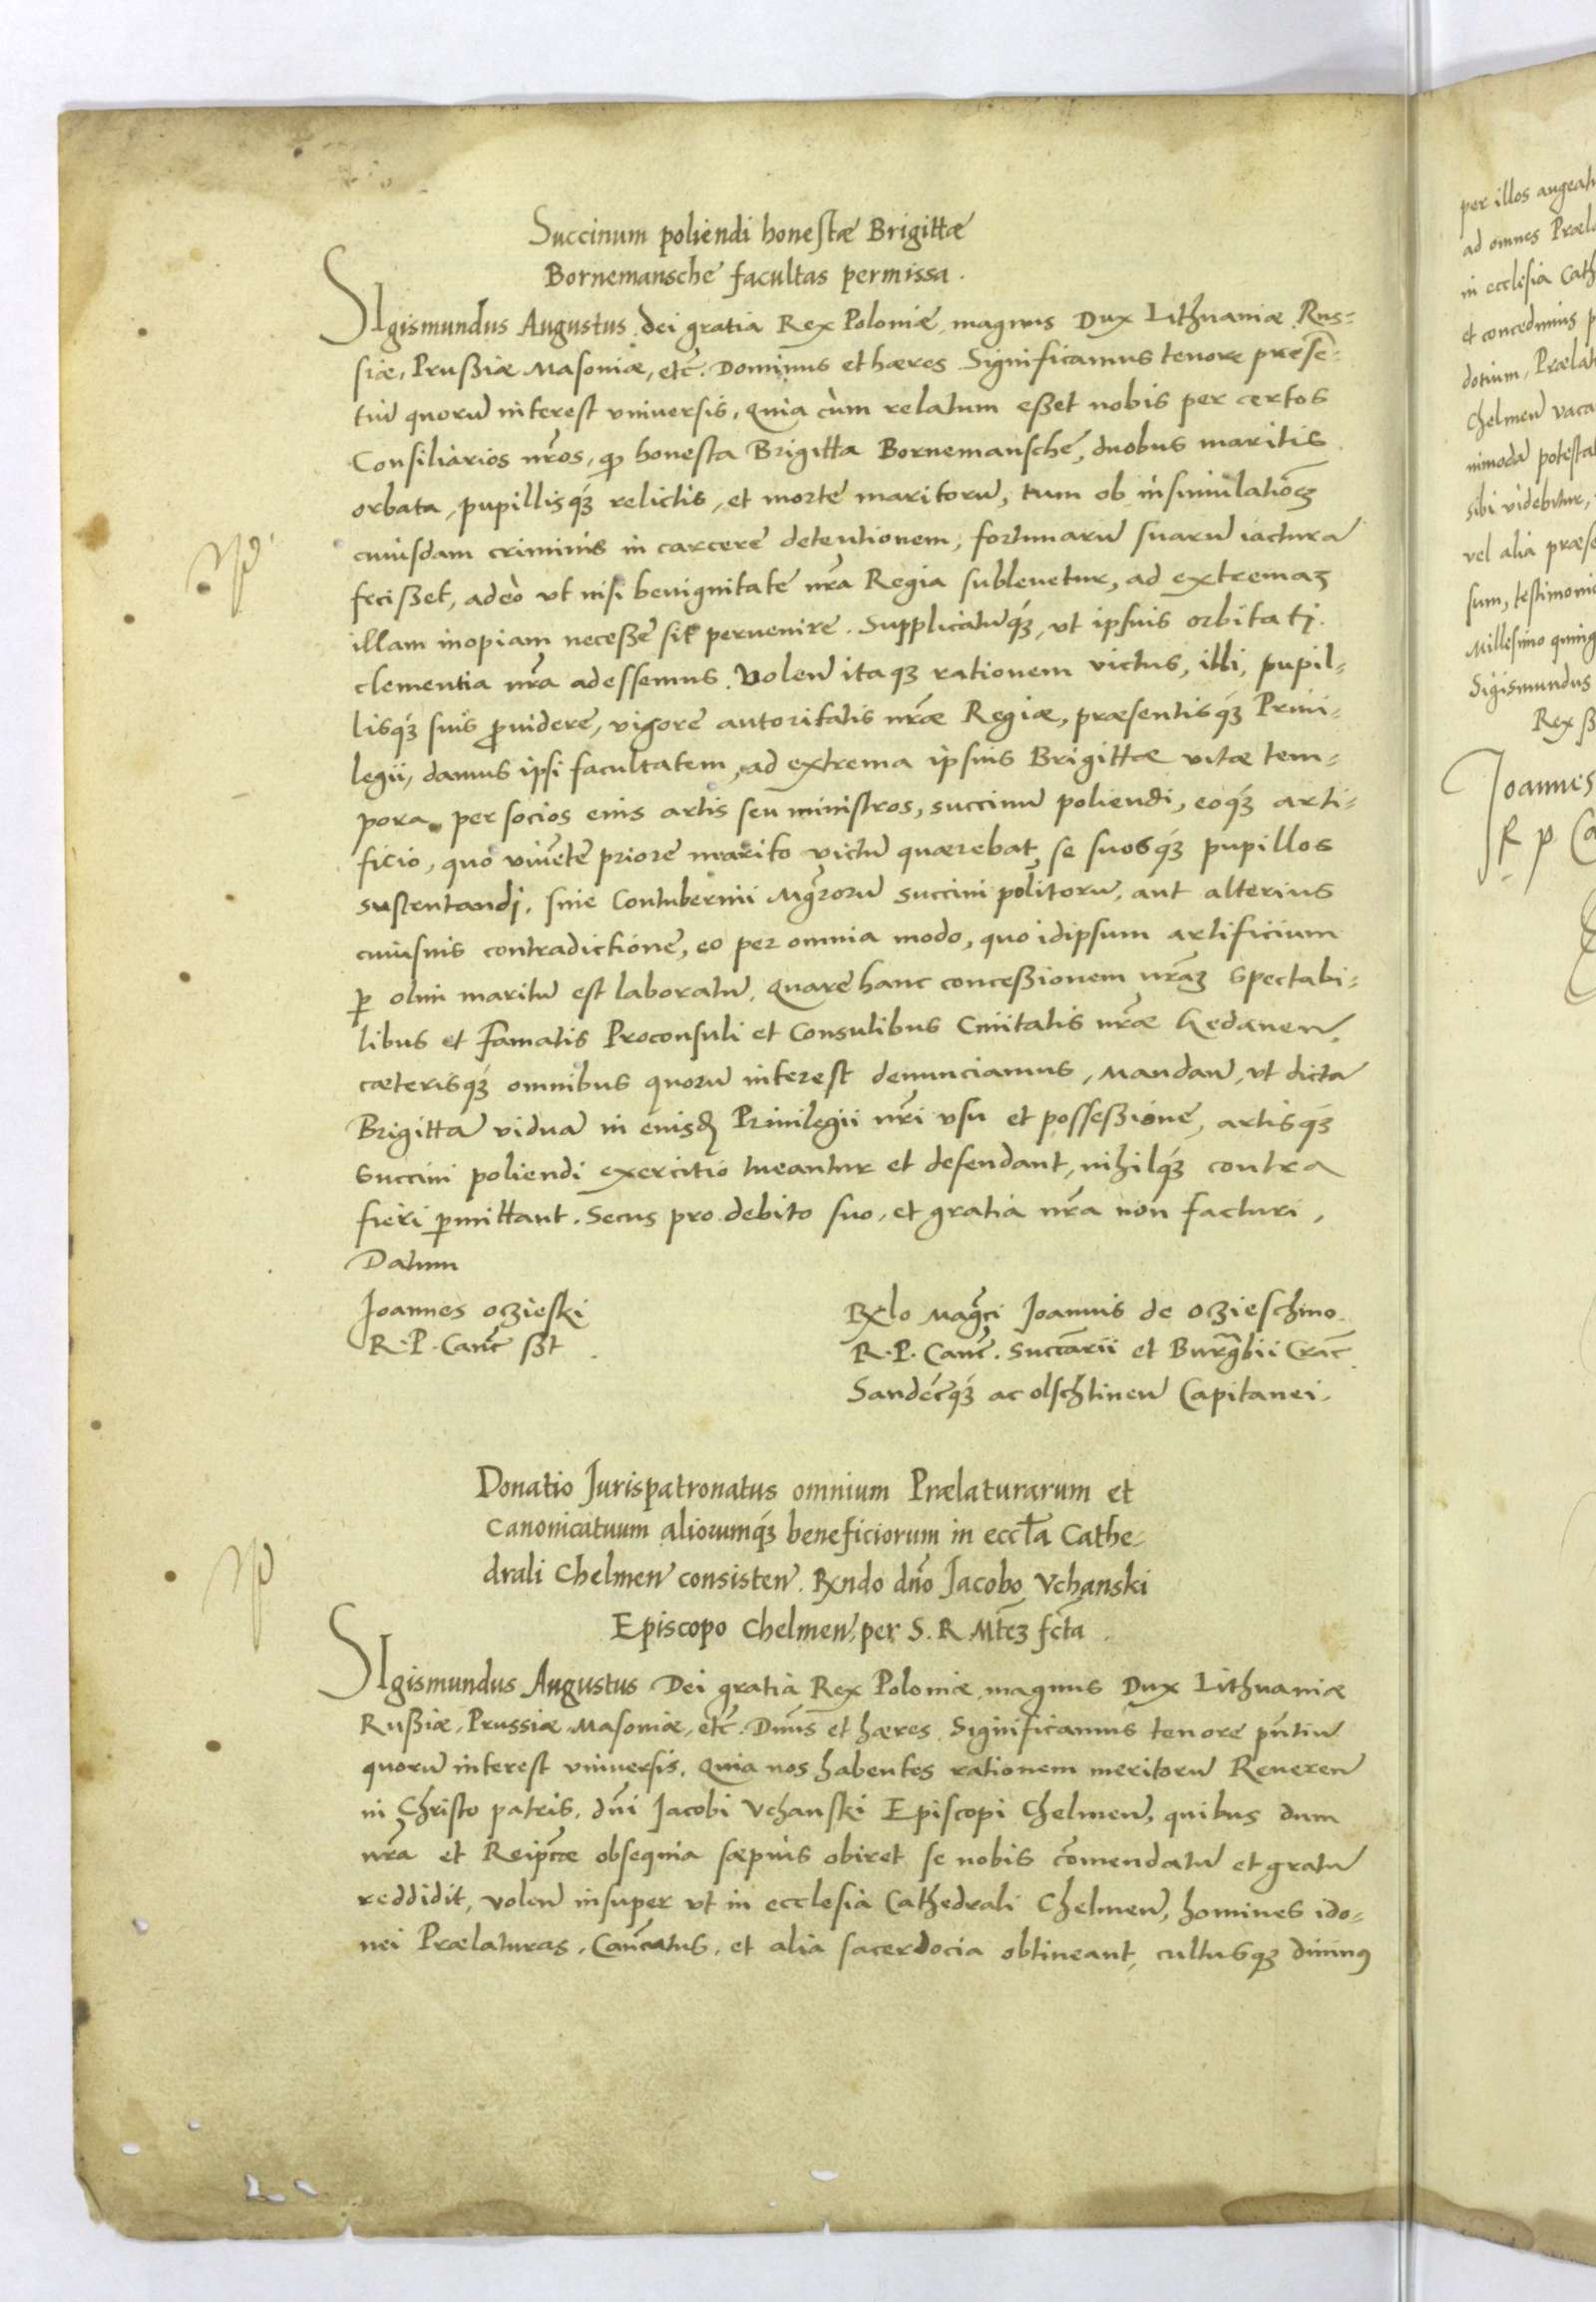 Succinum poliendi honestæ Brigittæ
Bornemansche facultas permissa.
SIgismundus Augustus dei gratia Rex Poloniæ, magnus Dux Lithuaniæ, Rus-
siæ, Prußiæ Masoniæ, etc̃. Dominus et hæres Significamus tenore præsē-
tiū quorū interest vniuersis, Quia cùm relatum eßet nobis per certos
Consiliarios nr̃os, ꝙ honesta Brigitta Bornemansche, duobus maritis
orbata, pupillisqꝫ relictis, et morte maritorū, tum ob insimulationꝫ
cuiusdam criminis in carcere detentionem, fortunarū suarū iacturā
fecißet, adeò vt nisi benignitate nr̃a Regia subleuetur, ad extremaꝫ
illam inopiam neceße sit peruenire. Supplicatūqꝫ, vt ipsius orbitati
clementia nr̃a adessemus. Volen̄ itaqꝫ rationem victus, illi, pupil-
lisqꝫ suis ꝓuidere, vigore autoritatis nr̃æ Regiæ, præsentisqꝫ Priui-
legii, damus ipsi facultatem, ad extrema ipsius Brigittæ vitæ tem-
pora, per socios eius artis seu ministros, succinū poliendi, eoqꝫ arti-
ficio, quo viuēte priore marito victū quærebat, se suosqꝫ pupillos
sustentandi, sine Contubernii Mgr̃orū succini politorū, aut alterius
cuiusuis contradictione, eo per omnia modo, quo idipsum artificium
ꝑ olim maritū est laboratū. Quare hanc conceßionem nr̃aꝫ Spectabi-
libus et Famatis Proconsuli et Consulibus Ciuitatis nr̃æ Gedanen̄,
cæterisqꝫ omnibus quorū interest denunciamus, Mandan̄, vt dictā
Brigittā viduā in eiusdꝫ Priuilegii nr̃i vsu et possessione, artisqꝫ
Succini poliendi exercitio tueantur et defendant, nihilqꝫ contra
fieri ꝑmittant. Secus pro debito suo, et gratia nr̃a non facturi.
Datum
Joannes oczieski
R. P. Canc̃ sßt
Rxlo Magc̃i Joannis de oczieschino
R. P. Canc̃. Succãrii et Burgr̃bii Crac̃
Sandec̃qꝫ ac olschtinen̄ Capitanei.
Donatio Jurispatronatus omnium Prælaturarum et
Canonicatuum aliorumqꝫ beneficiorum in eccl̃a Cathe-
drali Chelmen̄ consisten̄. Rxndo dn̄o Jacobo Vchanski
Episcopo Chelmen̄, per S. R. Mtc̃ꝫ fct̃a.
SIgismundus Augustus Dei gratia Rex Poloniæ, magnus Dux Lithuaniæ
Rußiæ, Prussiæ, Masoniæ, etc̃. Dn̄us et hæres. Significamus tenore pn̄tiū
quorū interest vniuersis, Quia nos habentes rationem meritorū Reueren̄
in Christo patris, dn̄i Jacobi Vchanski Episcopi Chelmen̄, quibus dum
nr̃a et Reipc̃æ obsequia sæpius obiret se nobis cōmendatū et gratū
reddidit, volen̄ insuper vt in ecclesia Cathedrali Chelmen̄, homines ido-
nei Prælaturas, Canc̃atus, et alia sacerdocia obtineant, cultusqꝫ diuinꝰ
per illos augeat
ad omnes Præl
in ecclesia Cath
et concedimus p
dotium, Prælat
Chelmen̄ vaca
nimodā potesta
sibi videbitur,
vel alia præse
sum, testimoni
Millesimo quing
Sigismundus
Rex ß
Joannes
R p Ca